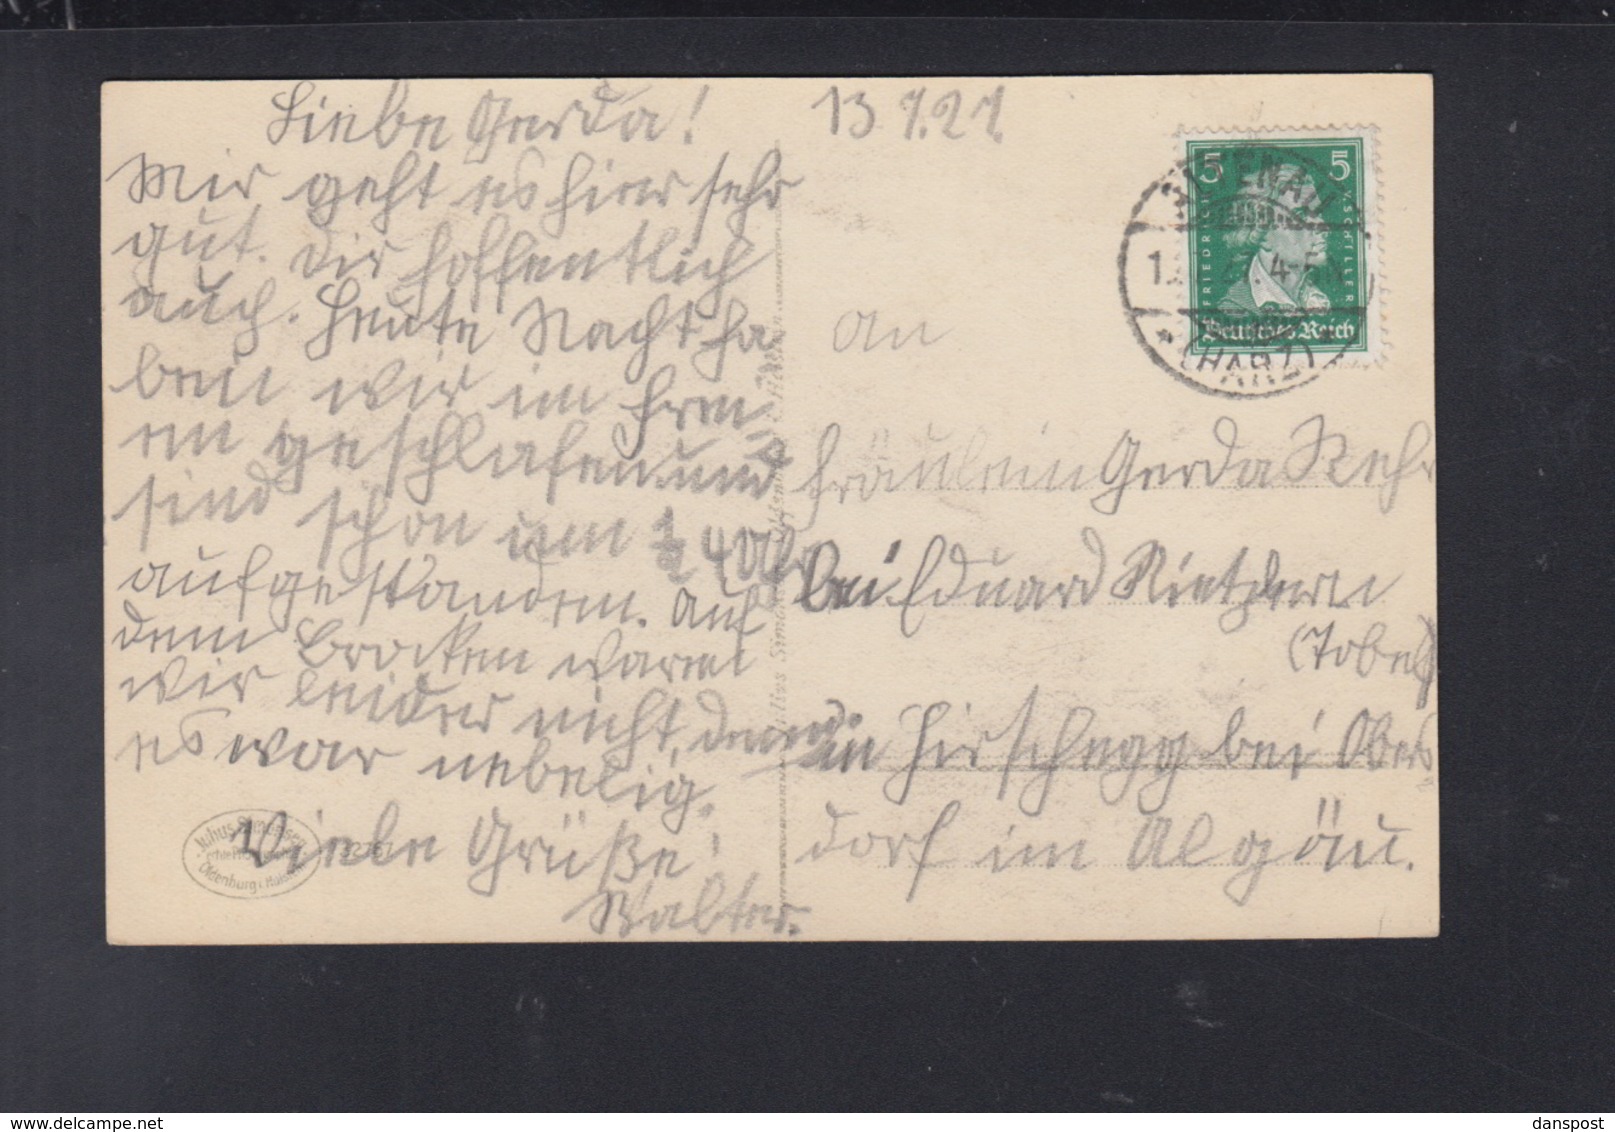 Liebe Gerda!
Mir geht es hier sehr
gut. Dir hoffentlich
auch. Heute Nacht ha-
ben wir im Frei-
en geschlafen und
sind schon um ½ 4 Uhr
aufgestanden. Auf
dem Brocken waren
wir leider nicht, denn
es war nebelig.
Viele Grüße!
Walter.
13 7. 27.
An
Fräulein Gerda Rehr
bei Eduard
(Tobel)
in Hirschegg bei Oberst
dorf im Algäu.
5 5
FRIEDRICH V. SCHILLER
Deutsches Reich
ALTENAU
4-5
(HARZ)
Julius Simonsen
Oldenburg i. Holstein
danspost